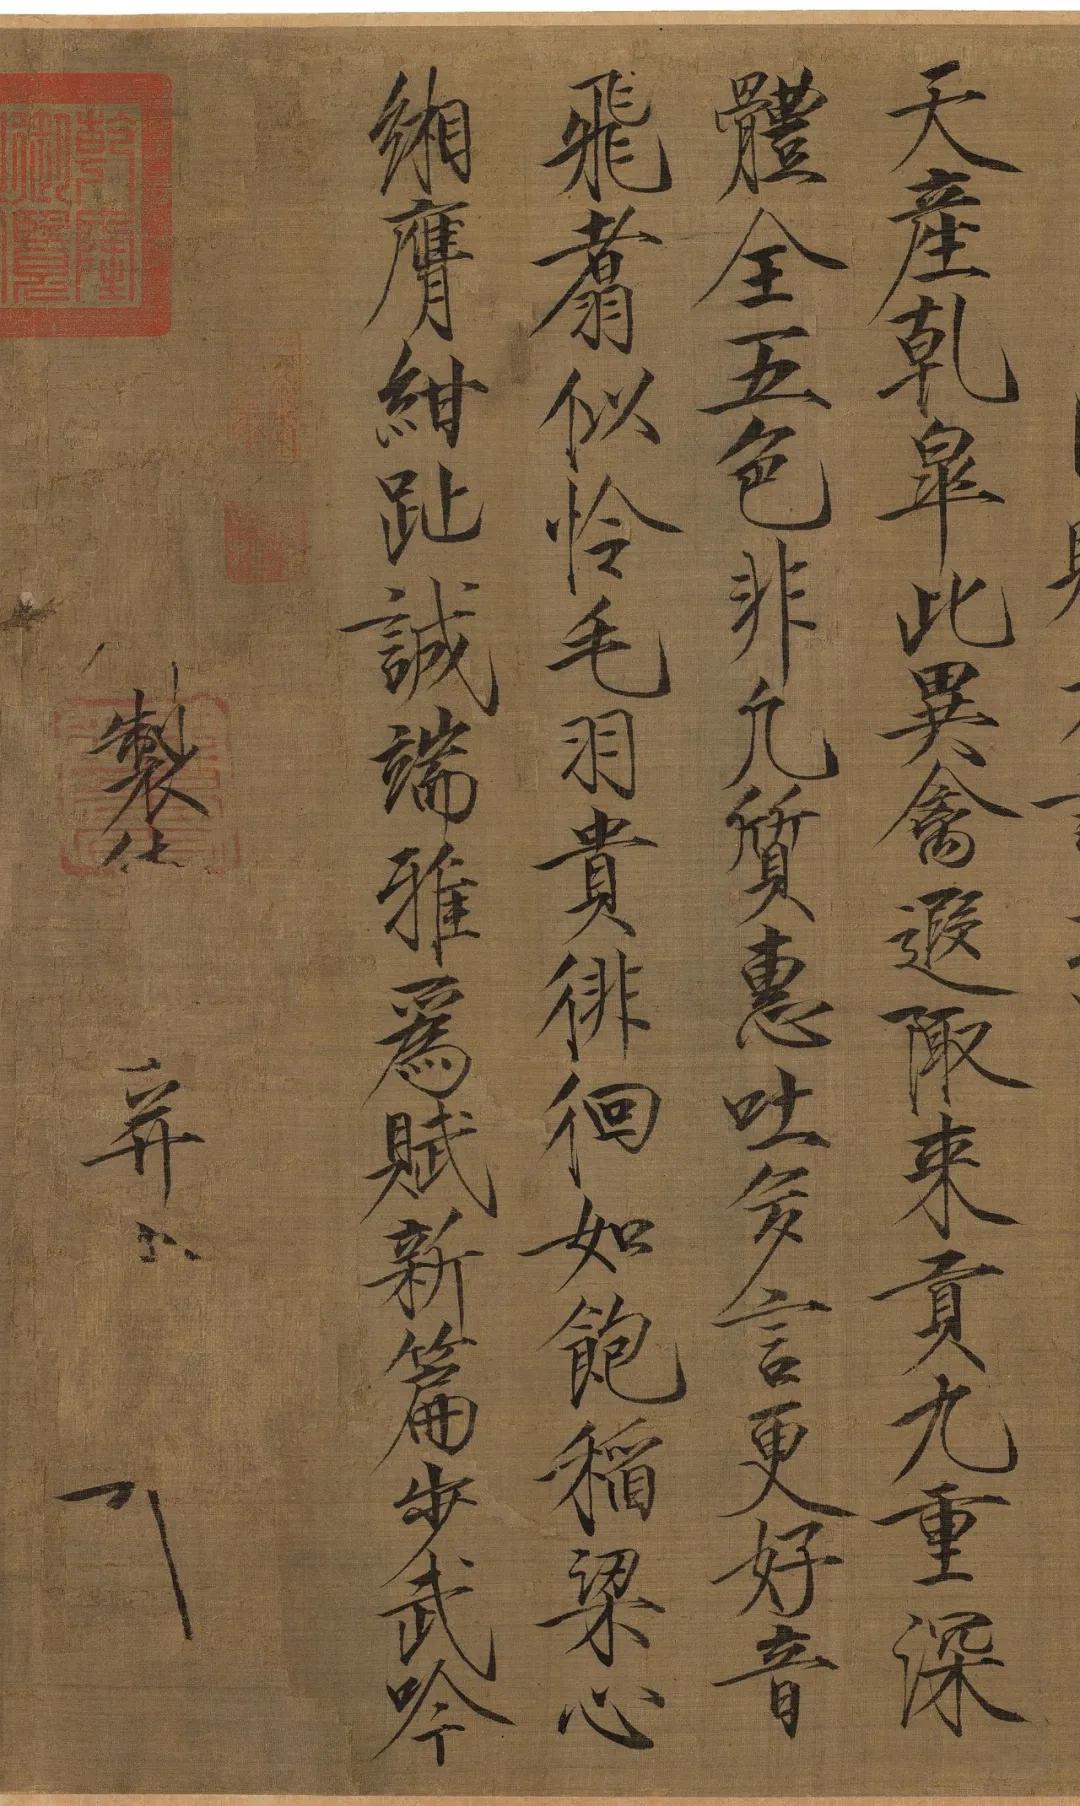 天產乾皋此異禽遐陬来貢九重深
體全五色非凢質惠吐多言更好音
飛翥似怜毛羽貴徘徊如飽稻粱心
緗膺紺趾誠端雅爲賦新篇步武吟
製
乾隆御覽